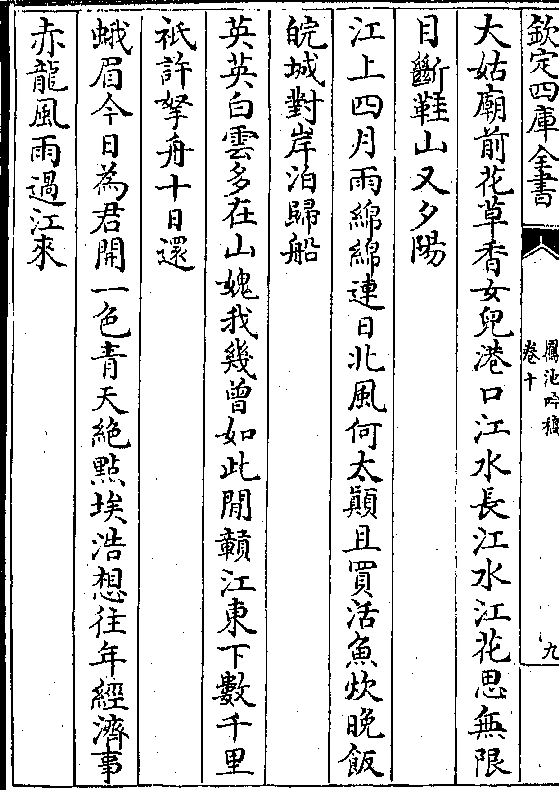 欽定四庫全書
鳳池吟稿
卷十
九
大姑廟前花草香女兒港口江水長江水江花思無限
目斷鞋山又夕陽
江上四月雨綿綿連日北風何太顛且買活魚炊晚飯
皖城對岸泊歸船
英英白雲多在山媿我幾曾如此閒贛江東下數千里
祇許拏舟十日還
蛾眉今日為君開一色青天絶點埃浩想往年經濟事
赤龍風雨過江來